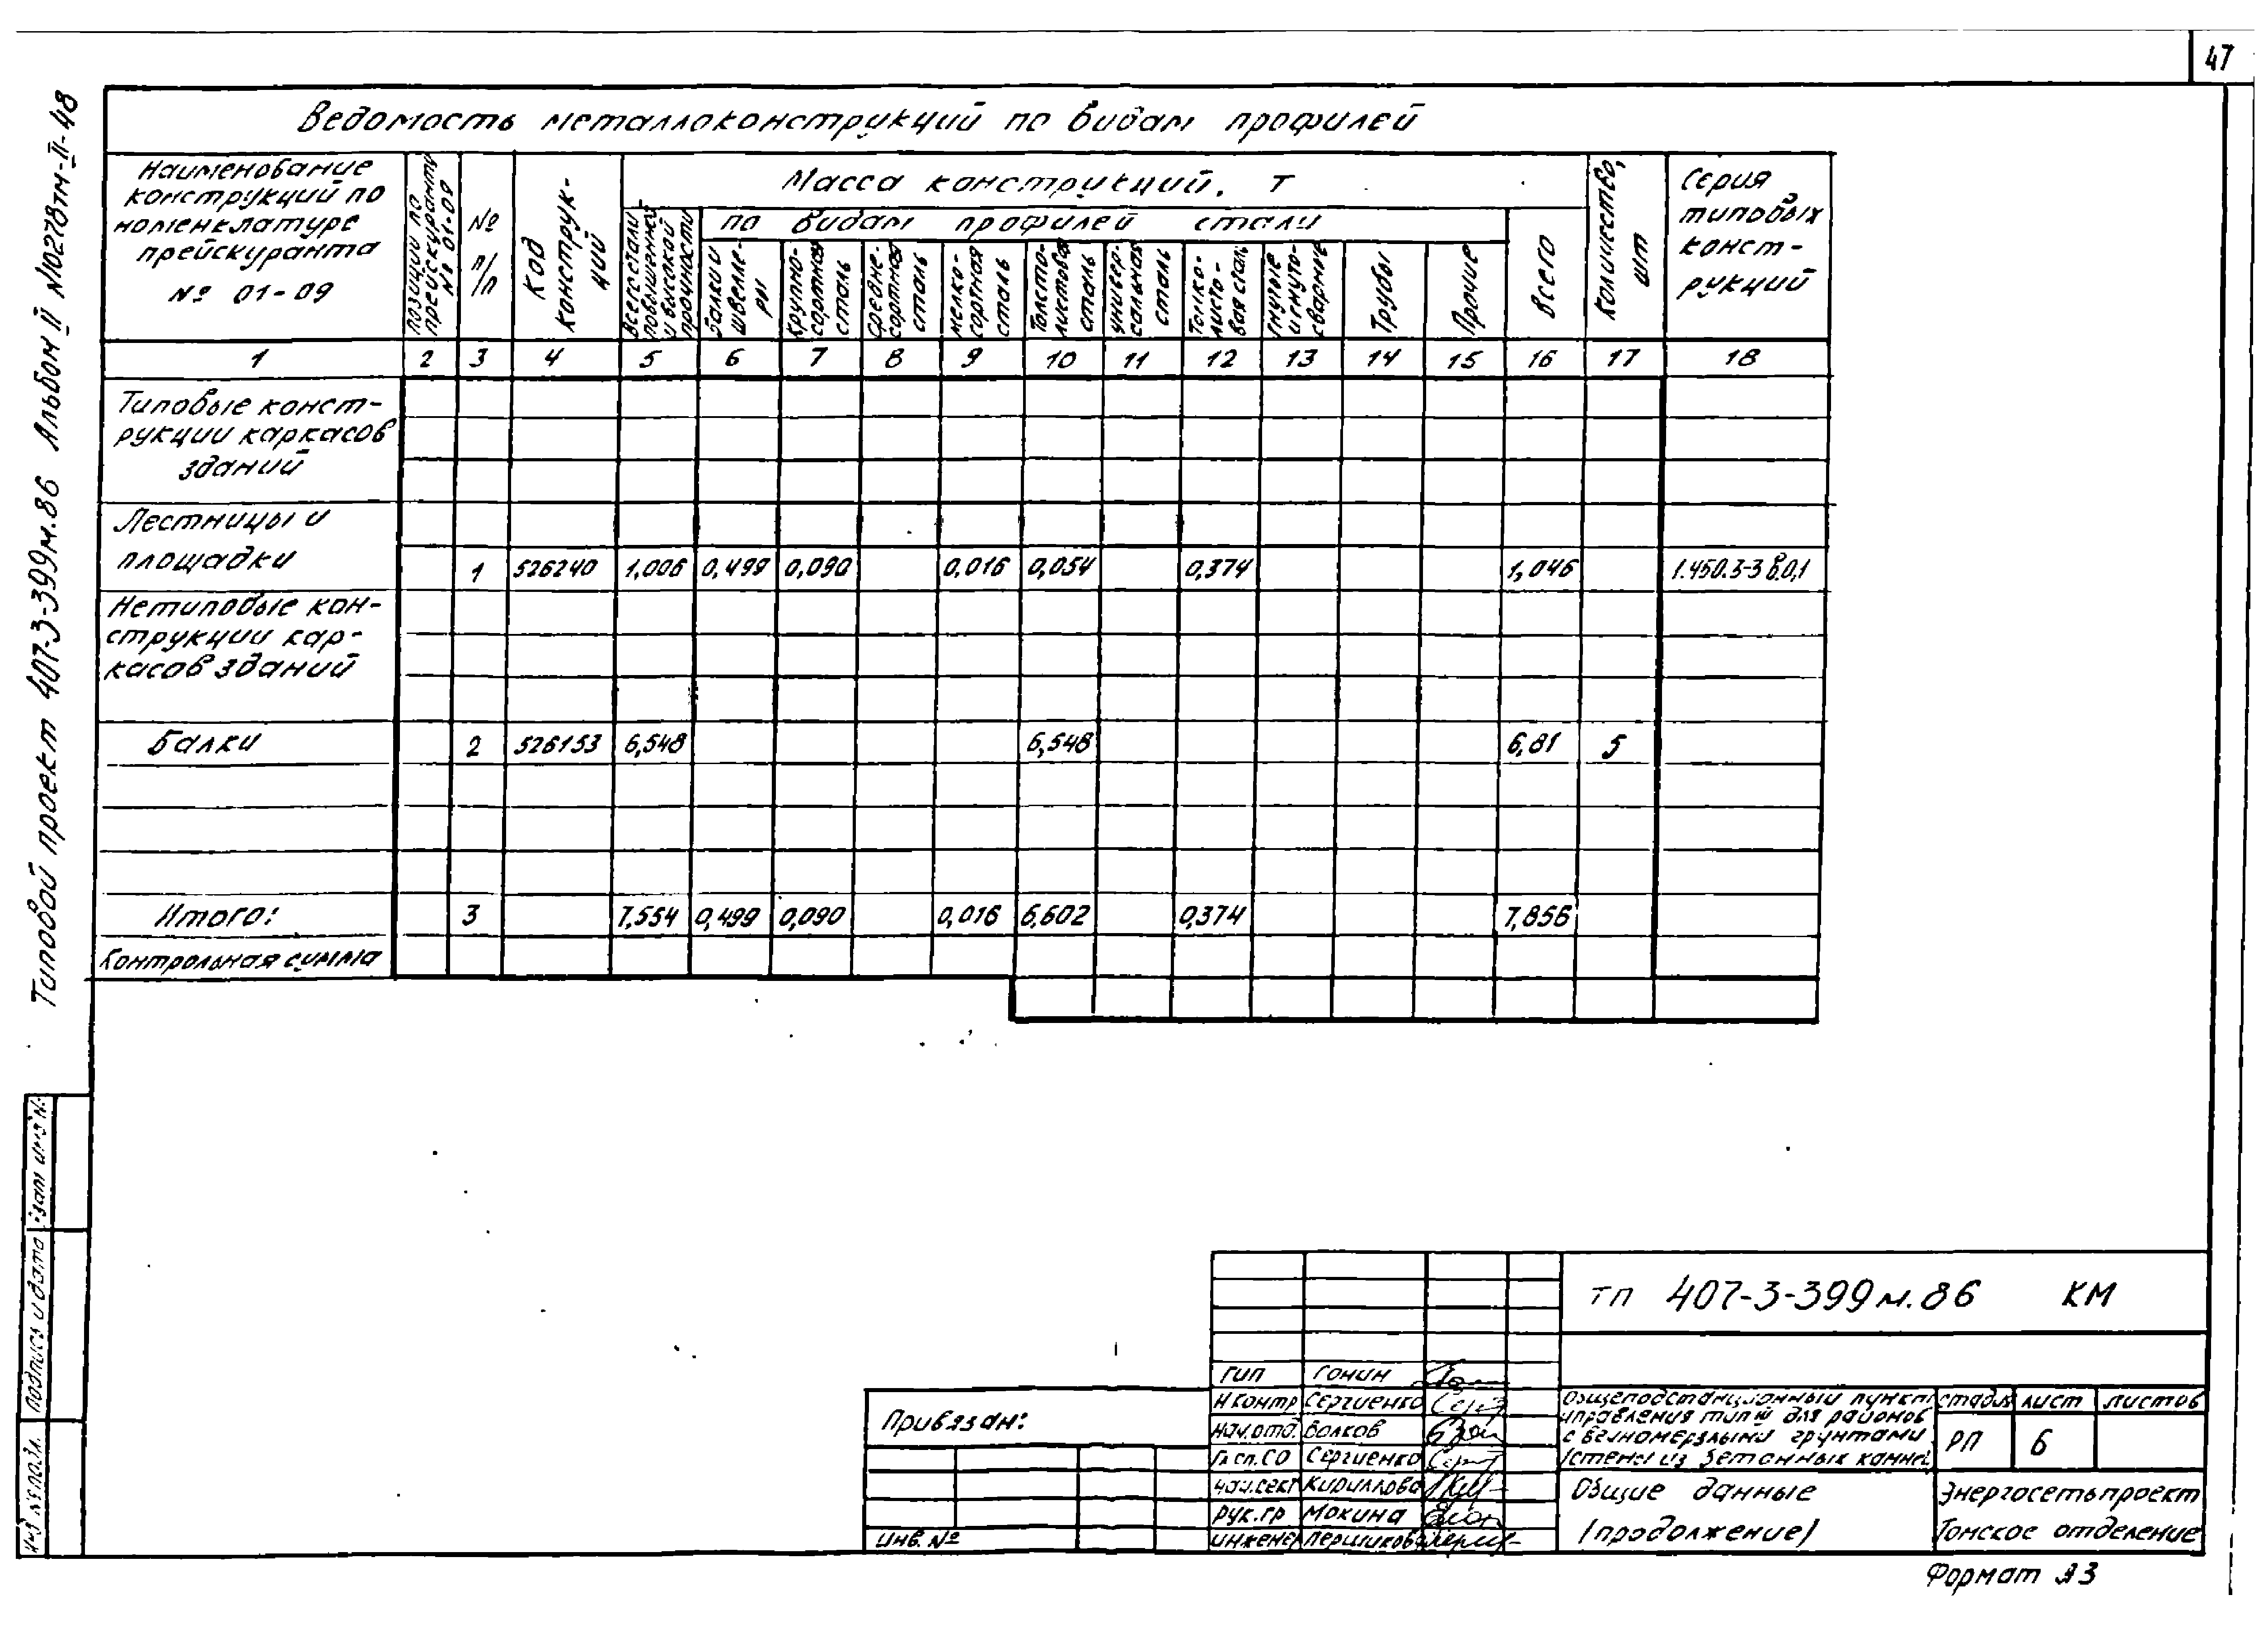 47
Типовой проект 407-3-399м.86 Альбом II N10278тм-II-48
Ведомость металлоконструкций по видам профилей
Наименование
конструкций по
номенклатуре
прейскуранта
№ 01-09
позиции по
прейскуранту
№ 01-09
№
п/п
Код
конструк-
ций
Масса конструкций, т
Всего стали
повышенной
и высокой
прочности
по видам профилей стали
балки и
швелле-
ры
крупно-
сортная
сталь
средне-
сортная
сталь
мелко-
сортная
сталь
Толсто-
листовая
сталь
универ-
сальная
сталь
Тонко-
листо-
вая сталь
гнутые
и гнуто-
сварные
Трубы
Прочие
Всего
Количество,
шт
Серия
типовых
конст-
рукций
1 2 3 4 5 6 7 8 9 10 11 12 13 14 15 16 17 18
Типовые конст-
рукции каркасов
зданий
Лестницы и
площадки 1 526240 1,006 0,499 0,090 0,016 0,054 0,374 1,046 1.450.3-3 в.0,1
Нетиповые кон-
струкции кар-
касов зданий
Балки 2 526153 6,548 6,548 6,81 5
Итого: 3 7,554 0,499 0,090 0,016 6,602 0,374 7,856
Контрольная сумма
Взам инв №
Подпись и дата
Инв № подл.
Привязан:
инв. №
ТП 407-3-399м.86 КМ
ГИП Гонин
Н контр Сергиенко
Нач.отд. Волков
Гл сп.СО Сергиенко
Нач.сект Кириллова
Рук.гр Мокина
инженер Першикова
Общеподстанционный пункт
управления тип III для районов
с вечномерзлыми грунтами
(стены из бетонных камней
стадия лист листов
РП 6
Общие данные
(продолжение)
Энергосетьпроект
Томское отделение
Формат А3